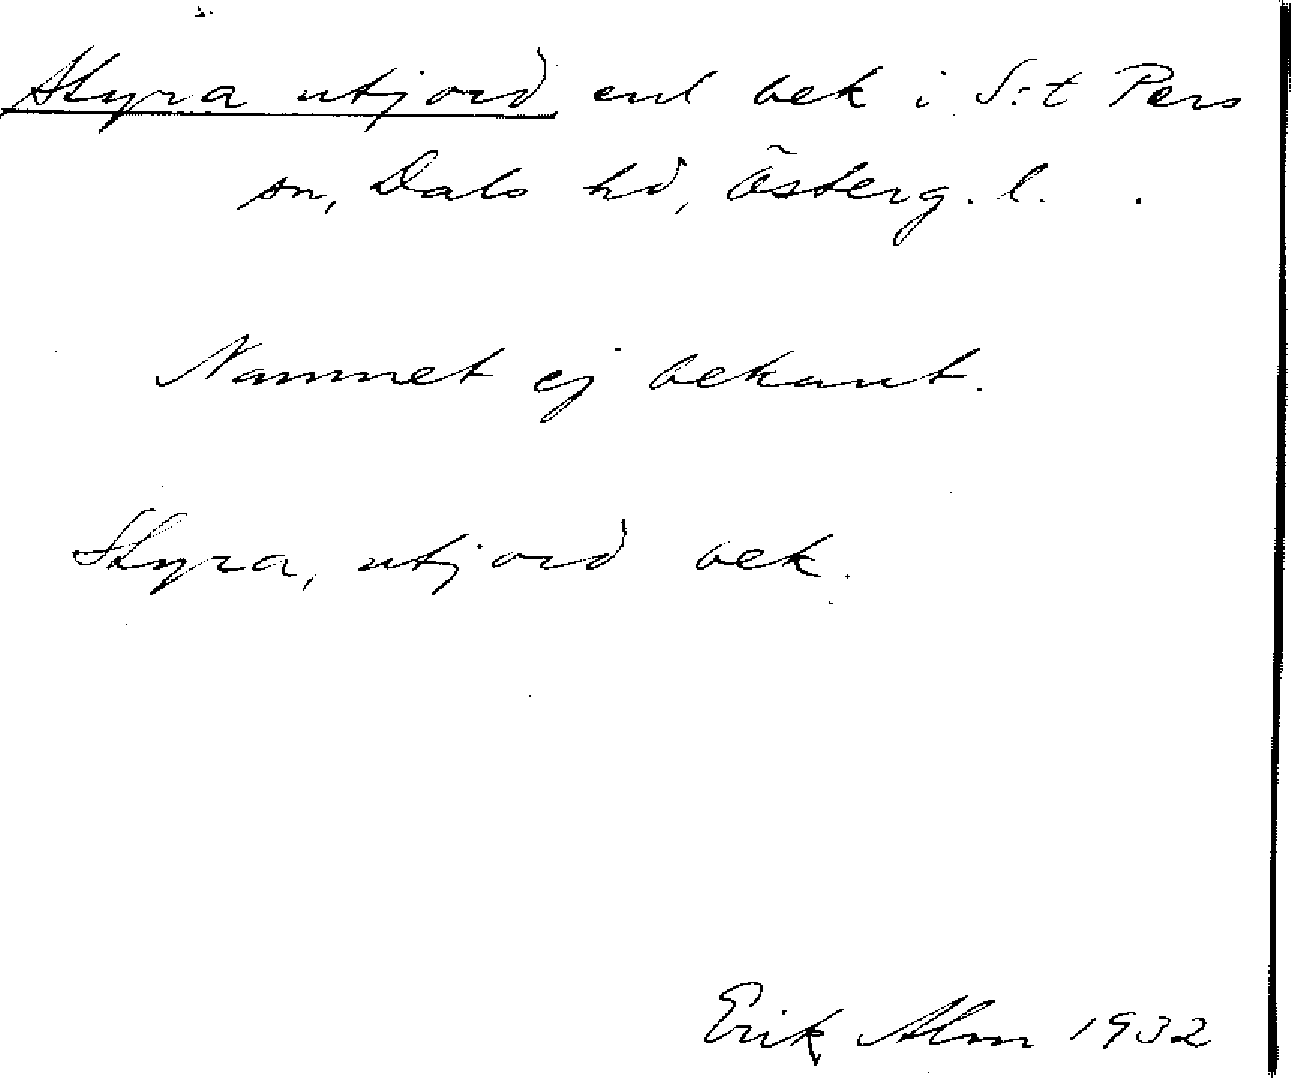 Styra utjord enl bek i S:t Pers
sn, Dals hd, Österg. l.
Namnet ej bekant.
Styra, utjord bek.
Erik Alm 1932